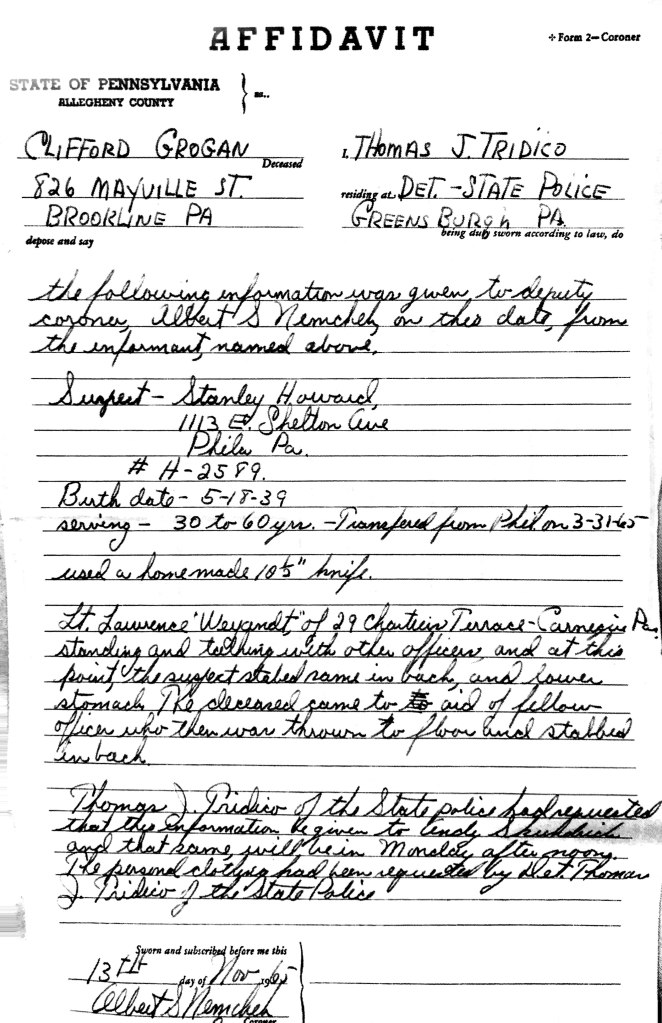 AFFIDAVIT
+ Form 2—Coroner
STATE OF PENNSYLVANIA
ALLEGHENY COUNTY
} ss..
CLIFFORD GROGAN
Deceased
826 MAYVILLE ST.
BROOKLINE PA
depose and say
I, THOMAS J. TRIDICO
residing at DET. - STATE POLICE
GREENSBURGH PA.
being duly sworn according to law, do
the following information was given to deputy
coroner, Albert S Nemcheh, on this date, from
the informant, named above.
Suspect - Stanley Howard,
1113 E. Shelton Ave
Phila Pa.
# H-2589.
Birth date - 5-18-39
serving - 30 to 60 yrs. - Transfered from Phil on 3-31-65
used a homemade 10 5" knife.
Lt. Lawrence "Weyandt," of 29 Terrace - Carnegie Pa.
standing and talking with other officers, and at this
point, the suspect stabed same in back, and lower
stomach. The deceased came to aid of fellow
officer who then was thrown to floor and stabbed
in back.
Thomas J. Tridico of the State police had requested
that this information be given to
and that same will be in Monday afternoon.
The personal clothing had been requested by Det. Thomas
J. Tridico of the State Police
Sworn and subscribed before me this
13th day of Nov 1965
Albert S Nemcheh
Coroner